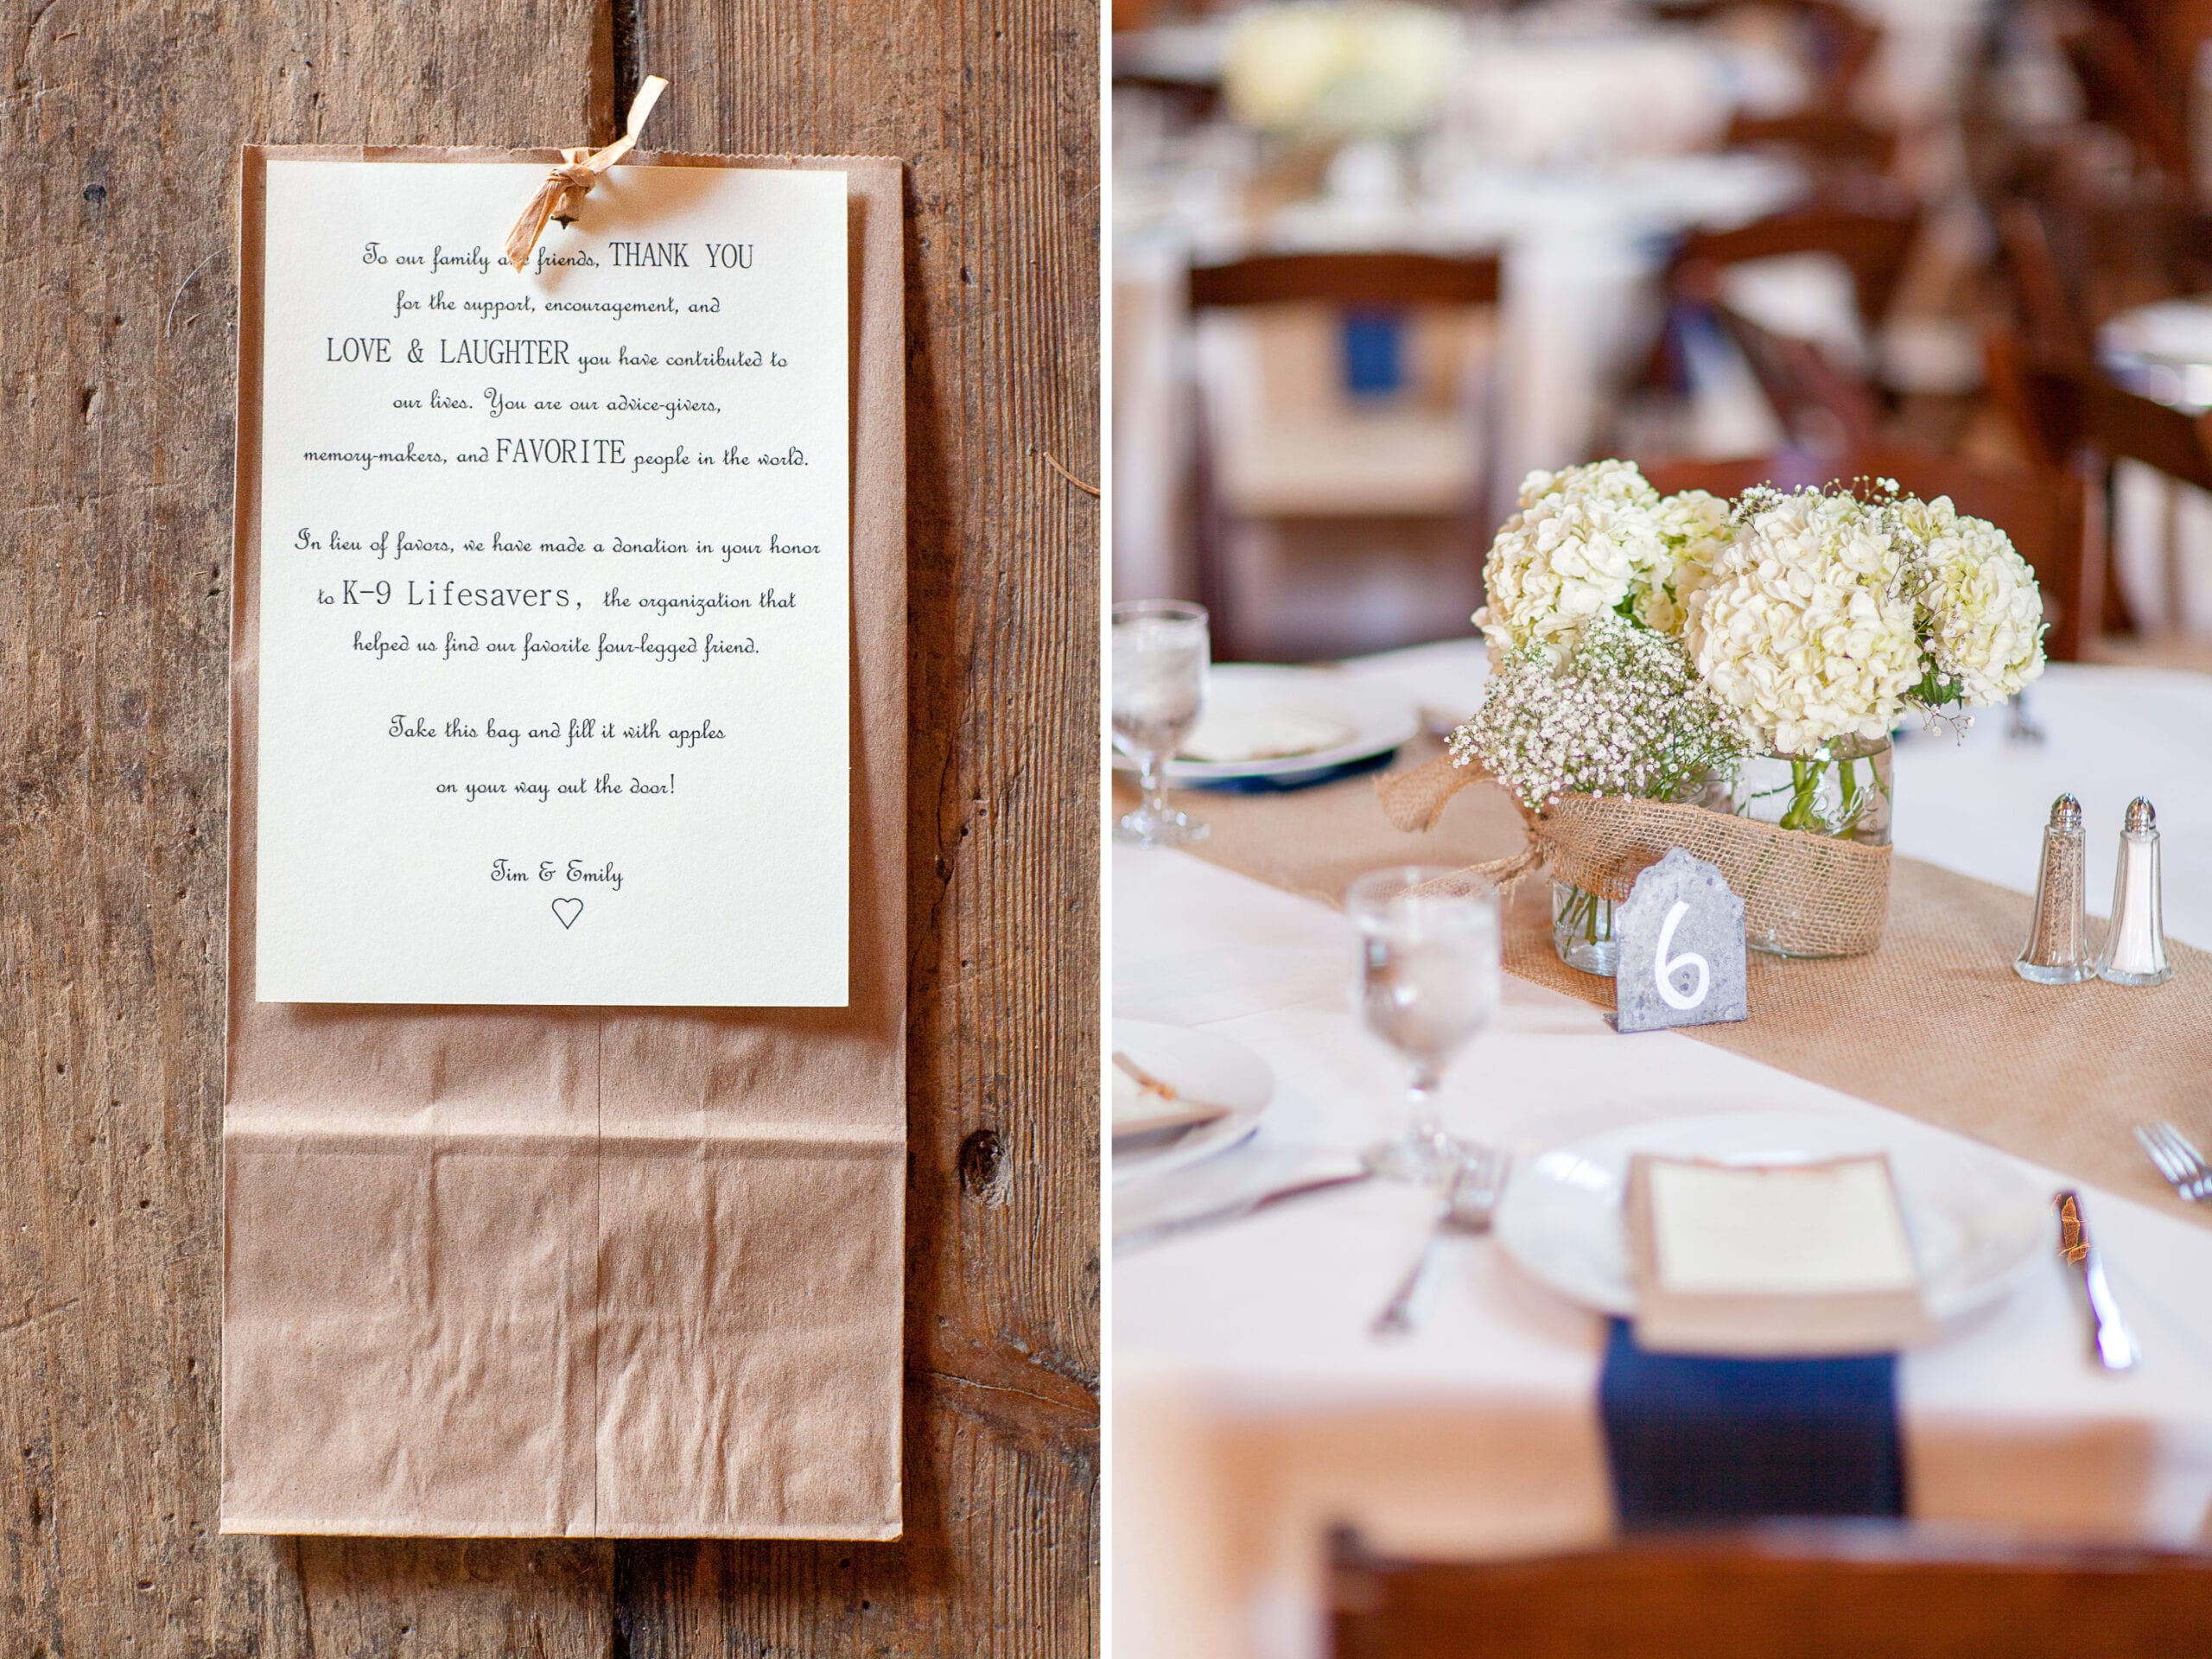 To our family and friends, THANK YOU
for the support, encouragement, and
LOVE & LAUGHTER you have contributed to
our lives. You are our advice-givers,
memory-makers, and FAVORITE people in the world.
In lieu of favors, we have made a donation in your honor
to K-9 Lifesavers, the organization that
helped us find our favorite four-legged friend.
Take this bag and fill it with apples
on your way out the door!
Tim & Emily
6